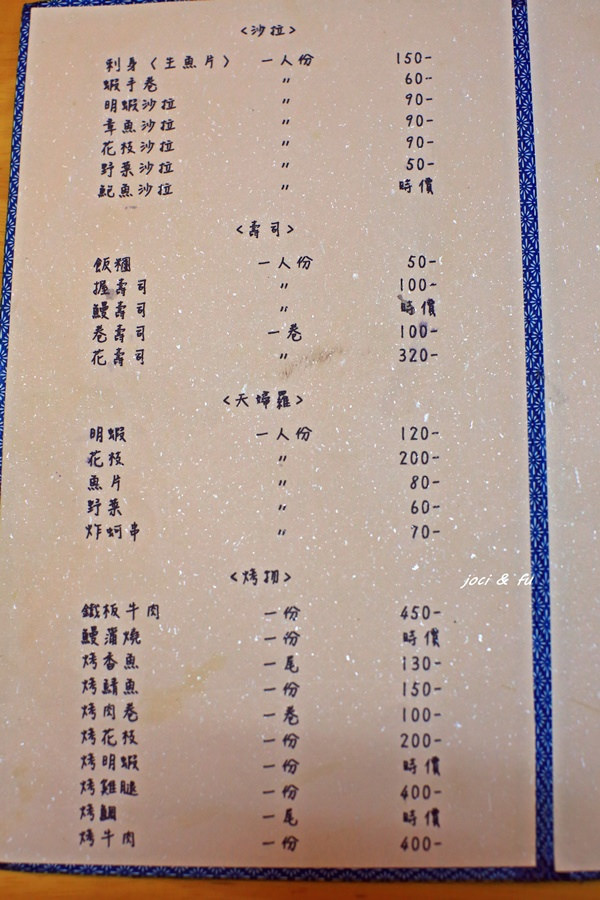 <沙拉>
刺身〈生魚片〉 一人份 150-
蝦手卷 〃 60-
明蝦沙拉 〃 90-
章魚沙拉 〃 90-
花枝沙拉 〃 90-
野菜沙拉 〃 50-
鮑魚沙拉 〃 時價
<壽司>
飯糰 一人份 50-
握壽司 〃 100-
鰻壽司 〃 時價
卷壽司 一卷 100-
花壽司 〃 320-
<天婦羅>
明蝦 一人份 120-
花枝 〃 200-
魚片 〃 80-
野菜 〃 60-
炸蚵串 〃 70-
<烤物>
joci & fu
鐵板牛肉 一份 450-
鰻蒲燒 一份 時價
烤香魚 一尾 130-
烤鯖魚 一份 150-
烤肉卷 一卷 100-
烤花枝 一份 200-
烤明蝦 一份 時價
烤雞腿 一份 400-
烤鯛 一尾 時價
烤牛肉 一份 400-